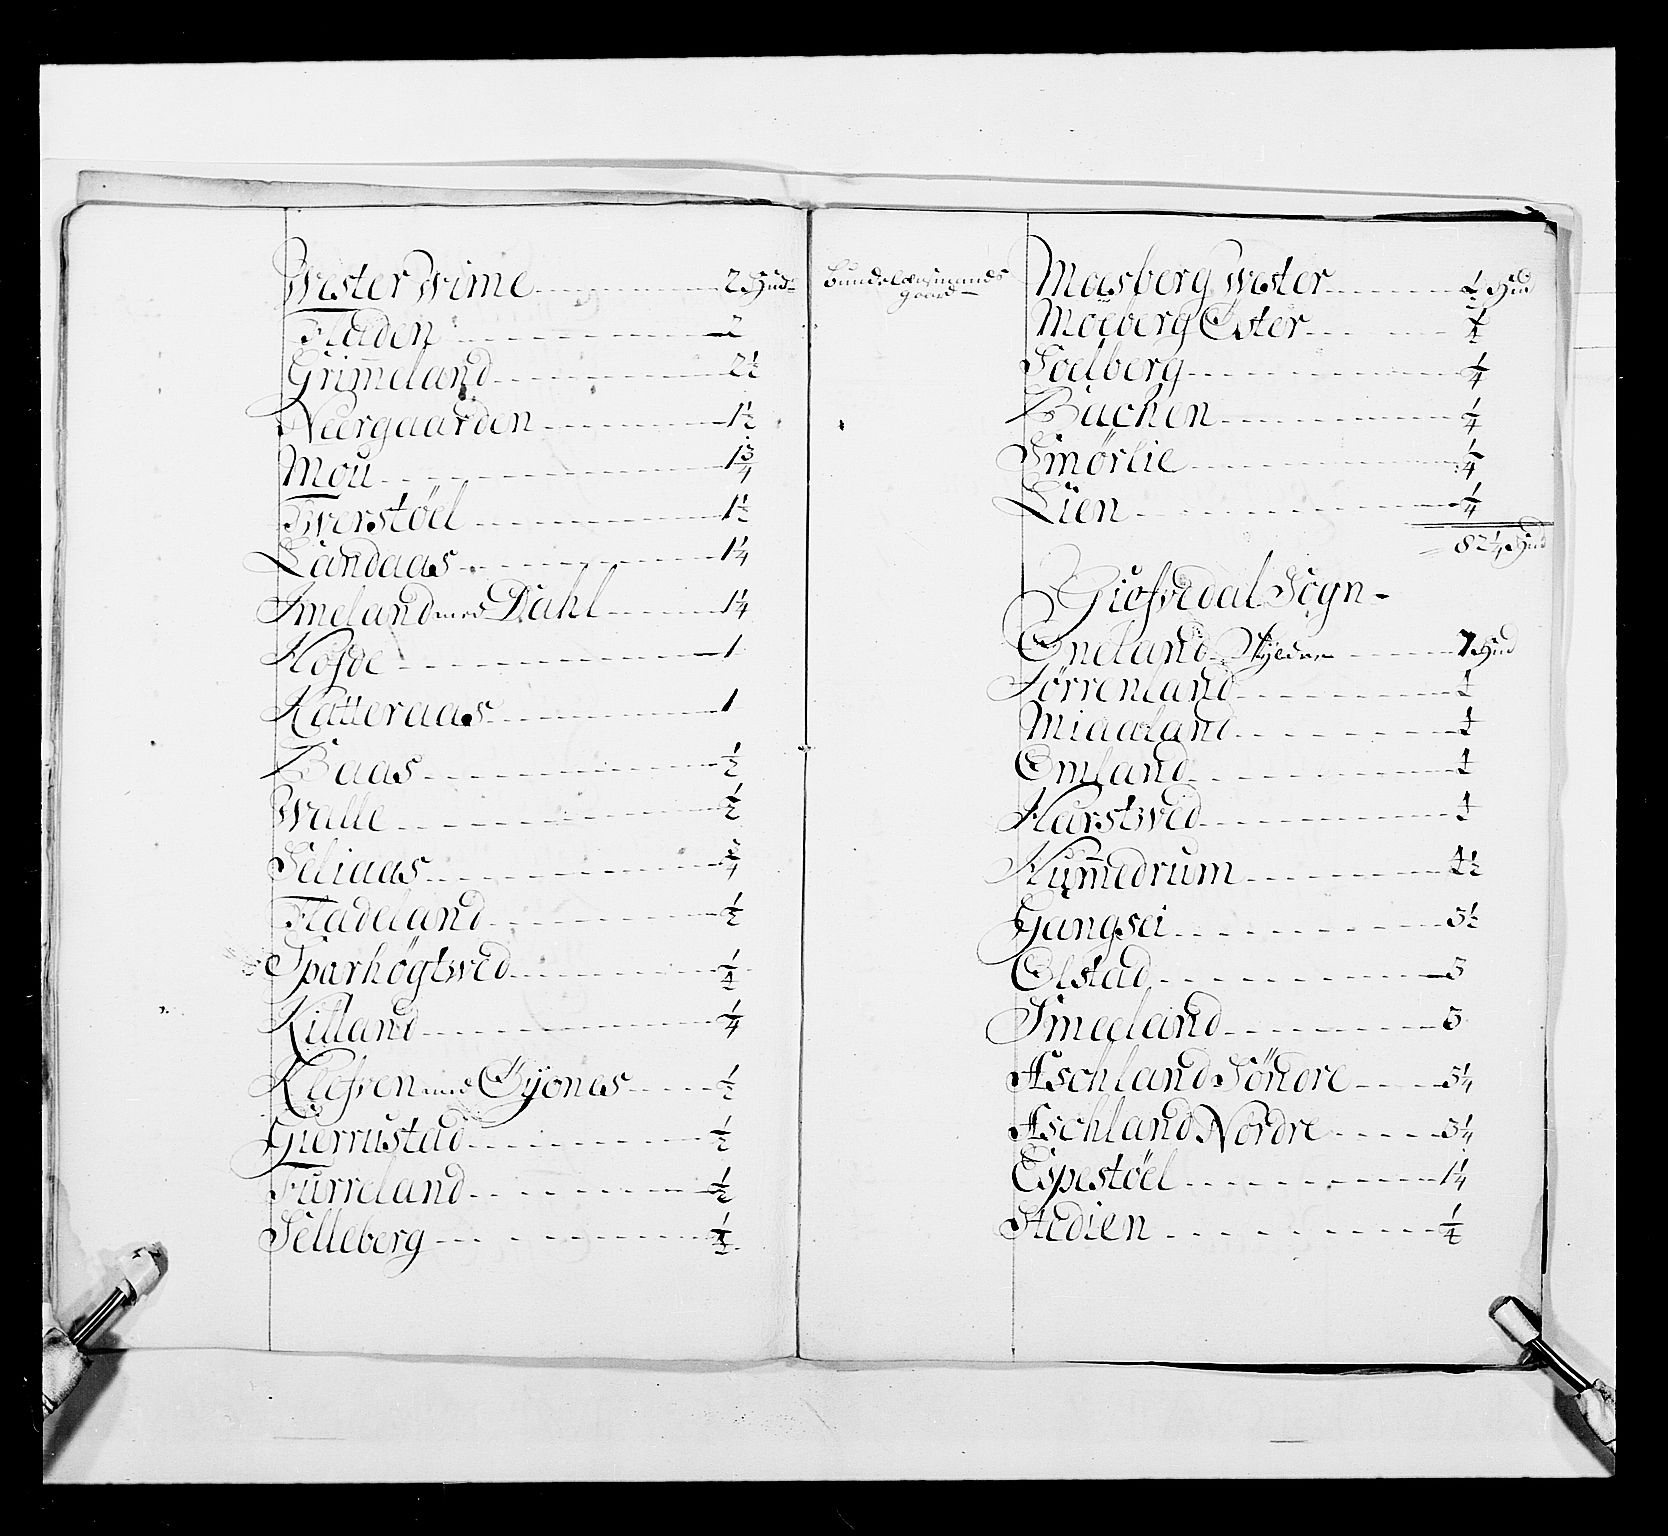 Wester Wime 2 Hud
Fladen 2
Grim̄eland 2½
Neergaarden 1½
Mou 1¾
Twerstöel 1½
Landaas 1¼
Imeland med Dahl 1¼
Kofde 1
Katteraas 1
Baas ½
Walle ½
Seliaas ¾
Fladeland ½
Sparhögtwed
Killand ¼
Klefven med Öÿonas ½
Gierrustad ½
Furreland ½
Selleberg
Bundelensmands
gaard
Moesberg Wester ½ Hud
Möeberg Öster
Soelberg ¼
Bachen ¼
Smørlie ¼
Lien ¼
82¼ Hud
Giefvedal Sogn
Oneland Skÿldur 7 Hud
Törrenland 4
Miaaland 4
Omland 4
Harstwed 4
Kum̄edrum 4½
Gangsei 3½
Olstad 3
Smeeland 3
Aschland Söndre 3¼
Aschland Nordre 3¼
Espestöel 1¼
Stedien ¼